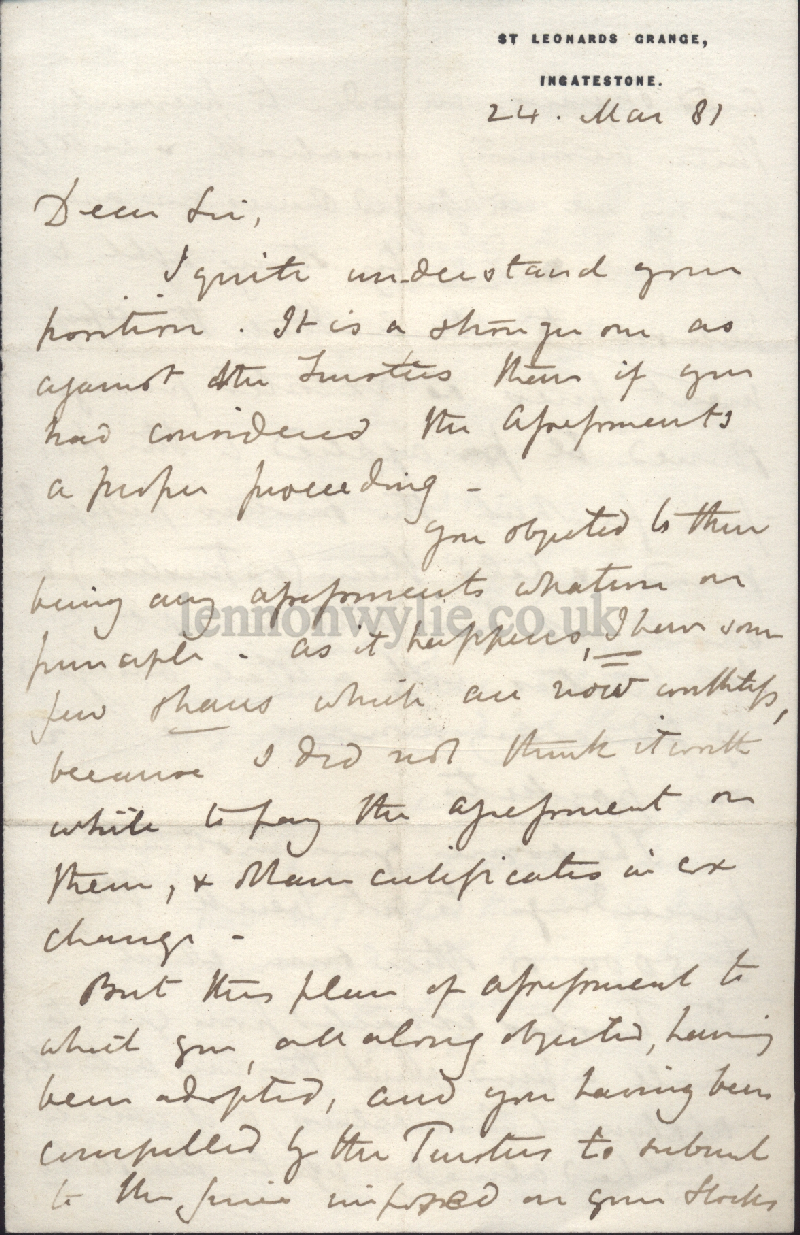 ST LEONARDS GRANGE,
INGATESTONE.
24. Mar 81
Dear Sir,
I quite understand your
position. It is a stronger one as
against the Trustees than if you
had considered the assessments
a proper proceeding -
You objected to there
being any assessments whatever on
principle. As it happens, I have some
few shares which are now worthless,
because I did not think it worth
while to pay the assessment on
them, & obtain certificates in ex
change -
But this plan of assessment to
which you, all along objected, having
been adopted, and you having been
compelled by the Trustees to submit
to the fine imposed on your Stocks
lennonwylie.co.uk